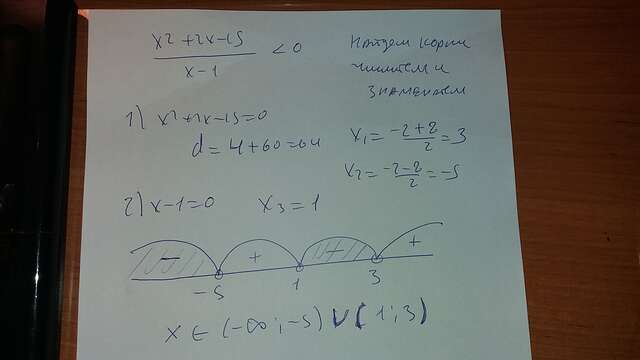 x² + 2x - 15 / x - 1 < 0
Найдем корни
числителя и
знаменателя
1) x² + 2x - 15 = 0
d = 4 + 60 = 64
x₁ = -2 + 8 / 2 = 3
x₂ = -2 - 8 / 2 = -5
2) x - 1 = 0 x₃ = 1
- + - +
-5 1 3
x ∈ (-∞; -5) ∪ (1; 3)